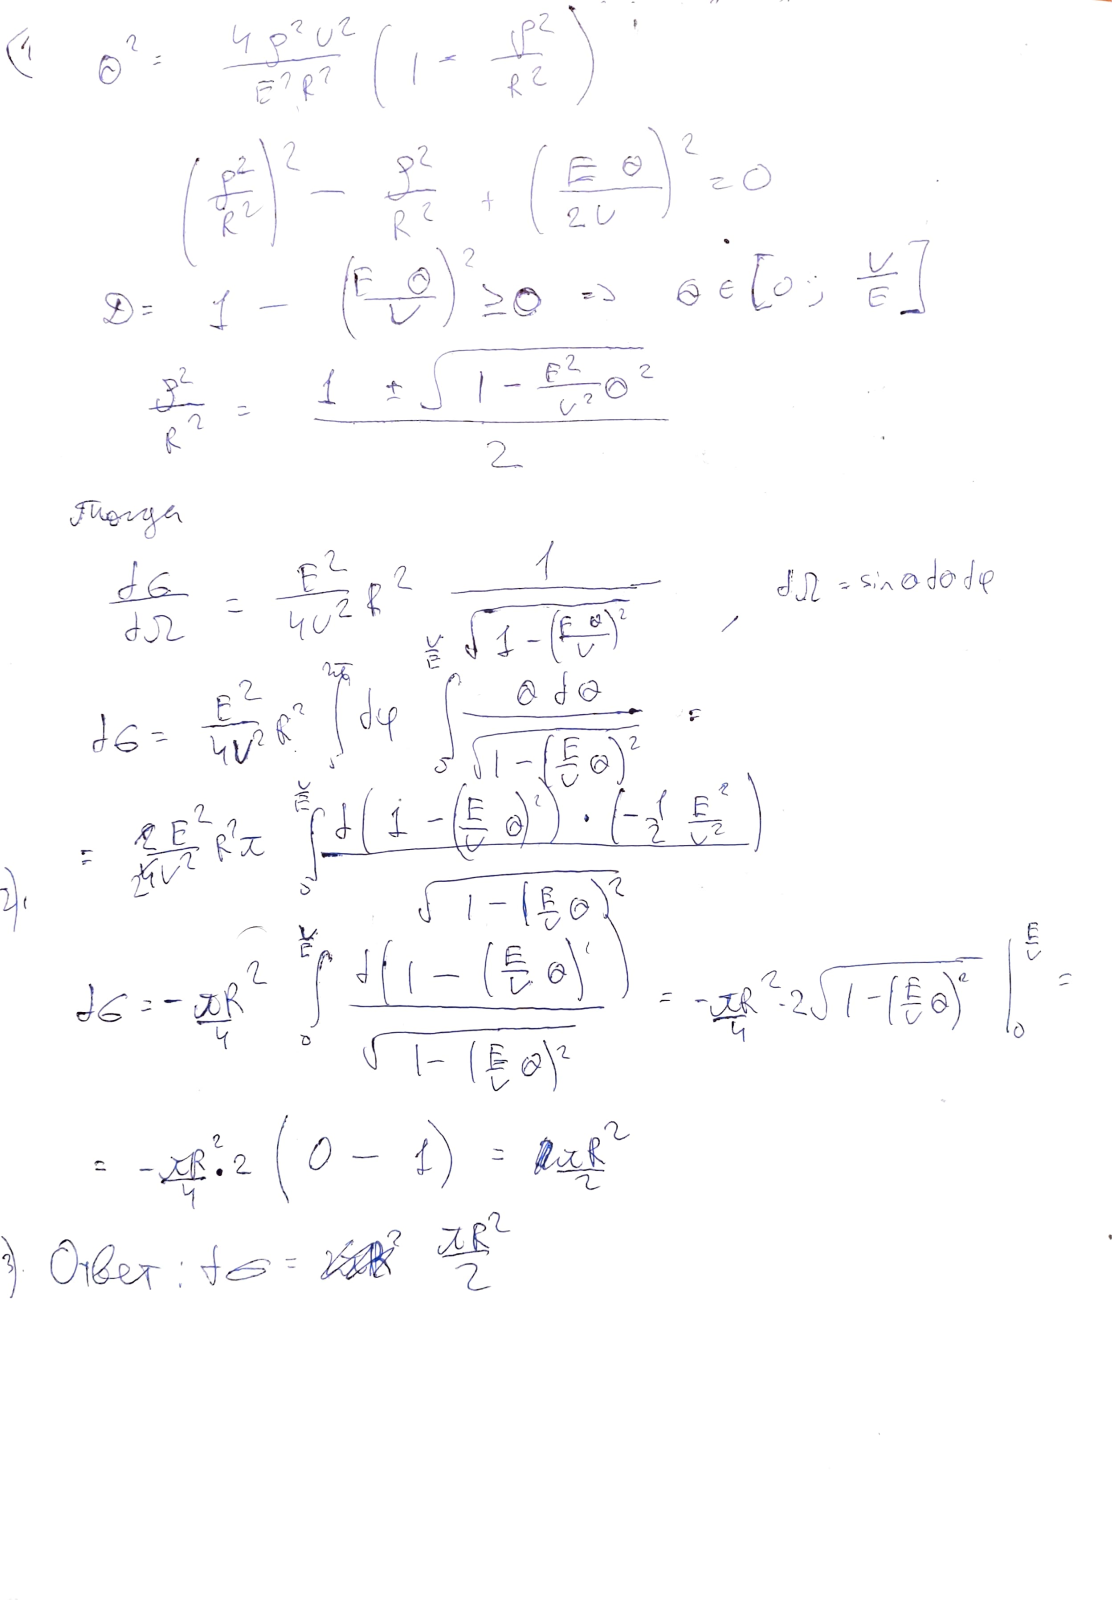 (1 θ² = 4ρ²U² / E²R² (1 - ρ²/R²)
(ρ²/R²)² - ρ²/R² + (E θ / 2U)² = 0
D = 1 - (E θ / U)² ≥ 0 => θ ∈ [0; U/E]
ρ²/R² = (1 ± √(1 - E²/U² θ²)) / 2
Тогда
dσ/dΩ = E²/4U² R² 1/√(1 - (E θ / U)²) , dΩ = sinθdθdφ
dσ = E²/4U² R² ∫₀^2π dφ ∫₀^(U/E) θ dθ / √(1 - (E/U θ)²) =
= E²/U² R²π ∫₀^(U/E) d(1 - (E/U θ)²) · (-1/2 E²/U²) / √(1 - (E/U θ)²)
2).
dσ = - πR²/4 ∫₀^(U/E) d(1 - (E/U θ)²) / √(1 - (E/U θ)²) = - πR²/4 · 2√(1 - (E/U θ)²) |₀^(E/U) =
= - πR²/4 · 2 (0 - 1) = πR²/2
3). Ответ: dσ = πR²/2